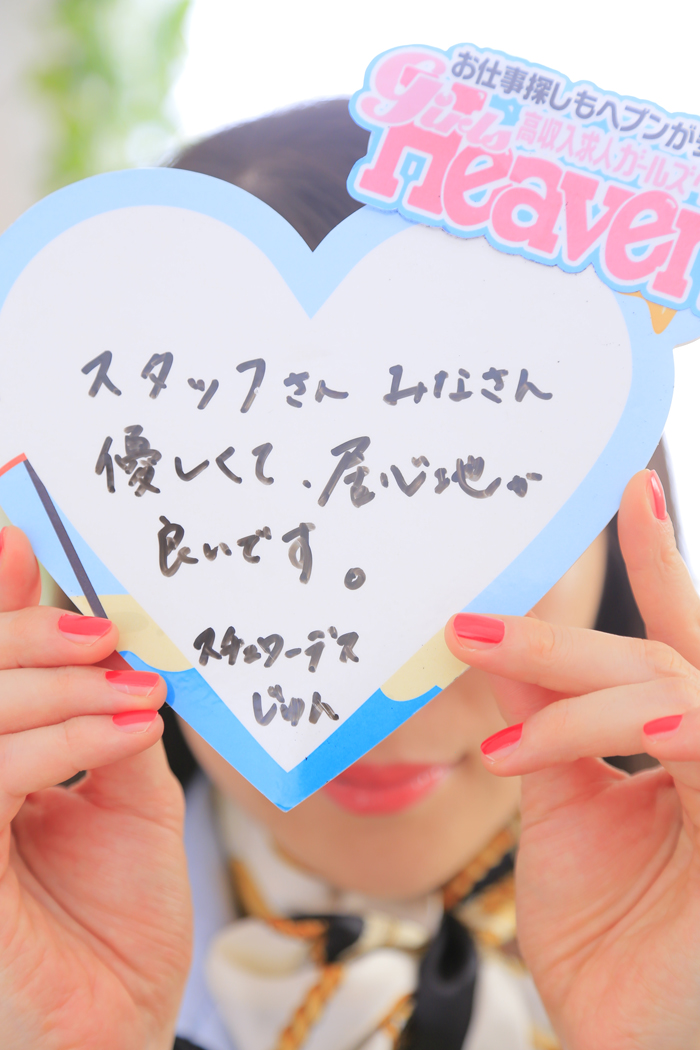 お仕事探しもヘブンが
高収入求人ガールズ
Girls
Heaven
スタッフさん みなさん
優しくて、居心地が
良いです。
スチュワーデス
じゅん